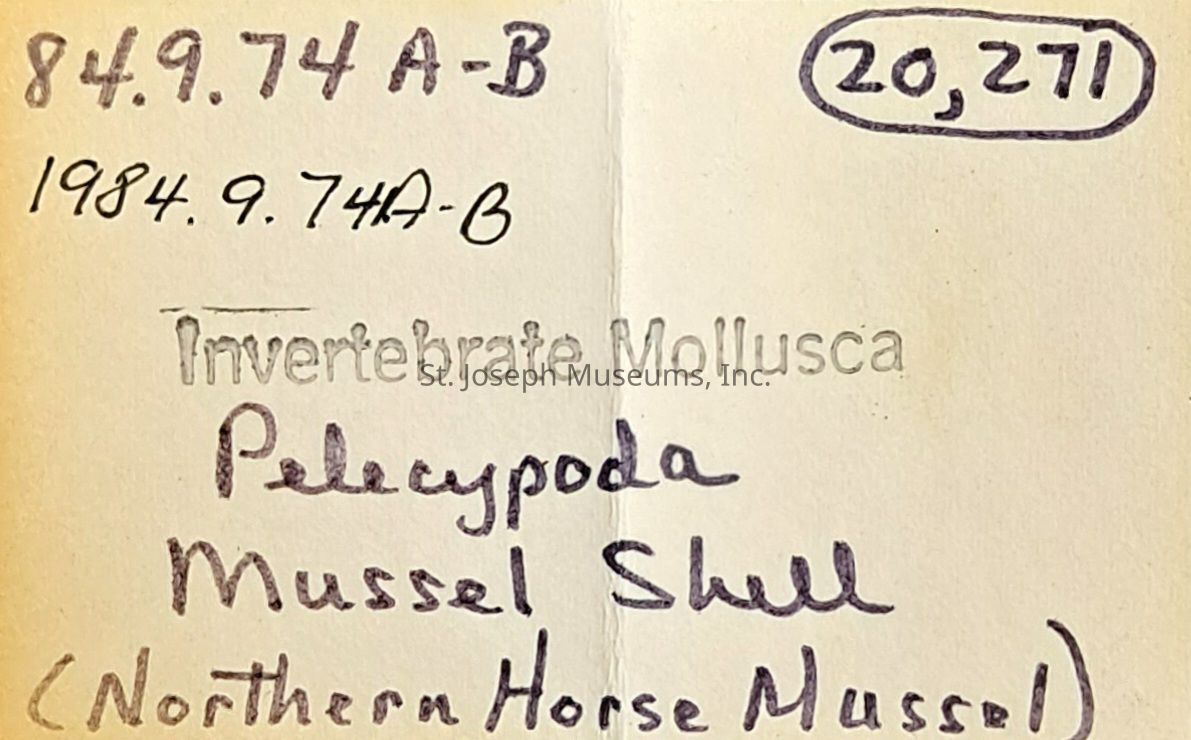 84.9.74 A-B
20,271
1984.9.74A-B
Invertebrate Mollusca
St. Joseph Museums, Inc.
Pelecypoda
Mussel Shell
(Northern Horse Mussel)